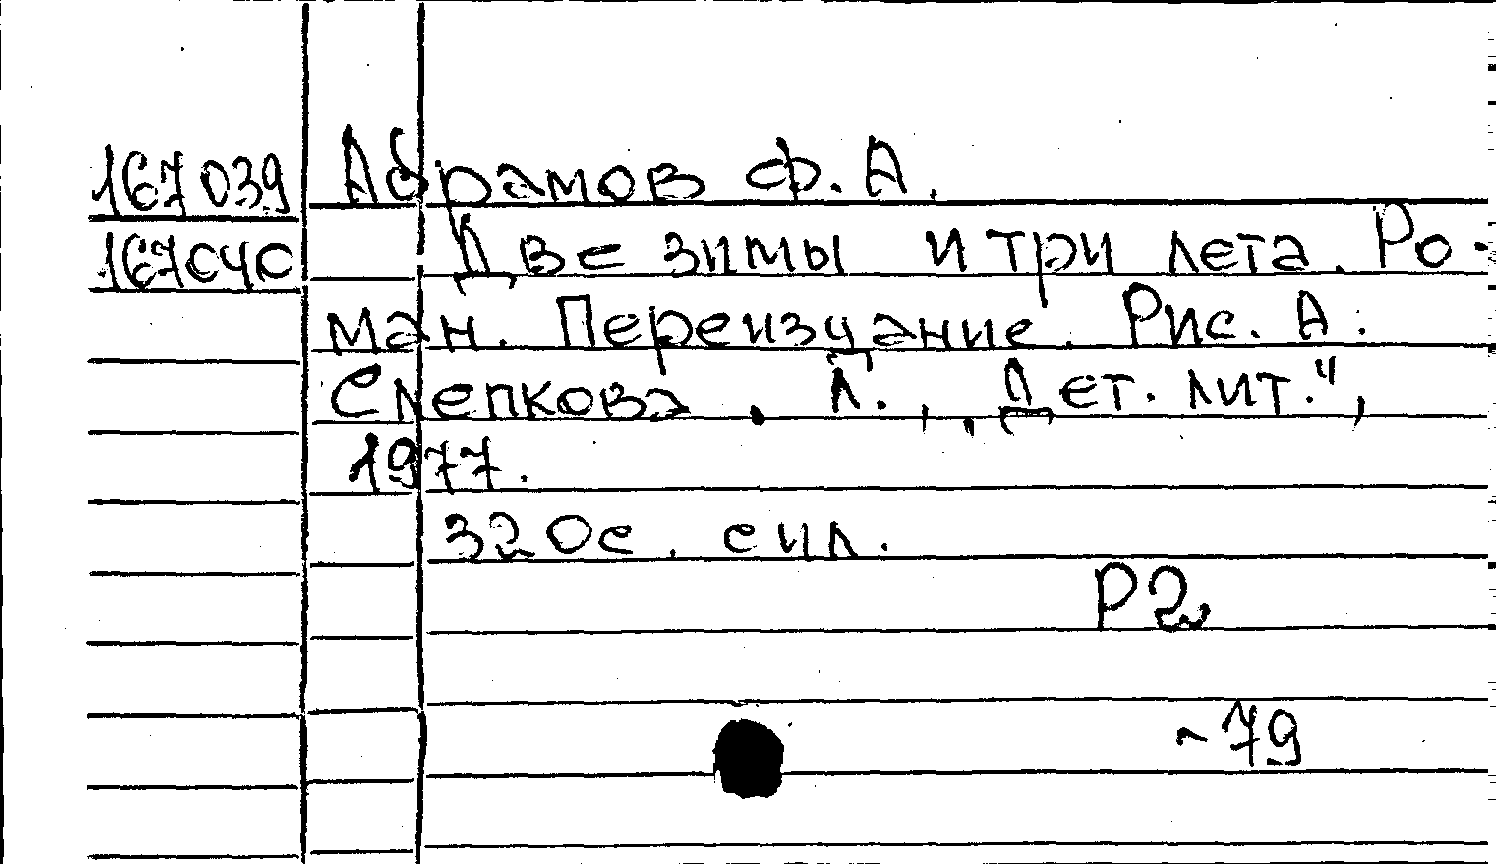 167039 Абрамов Ф. А.
167040 Две зимы и три лета. Ро-
ман. Переиздание. Рис. А.
Слепкова. Л., „Дет. лит.",
1977.
320с. с ил.
Р2
~79